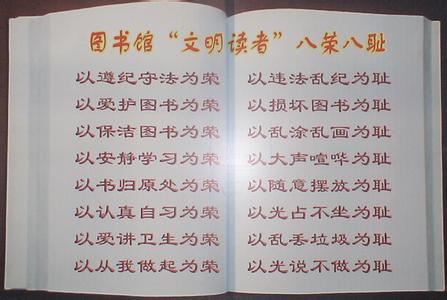 图书馆“文明读者”八荣八耻
以遵纪守法为荣 以违法乱纪为耻
以爱护图书为荣 以损坏图书为耻
以保洁图书为荣 以乱涂乱画为耻
以安静学习为荣 以大声喧哗为耻
以书归原处为荣 以随意摆放为耻
以认真自习为荣 以光占不坐为耻
以爱讲卫生为荣 以乱丢垃圾为耻
以从我做起为荣 以光说不做为耻